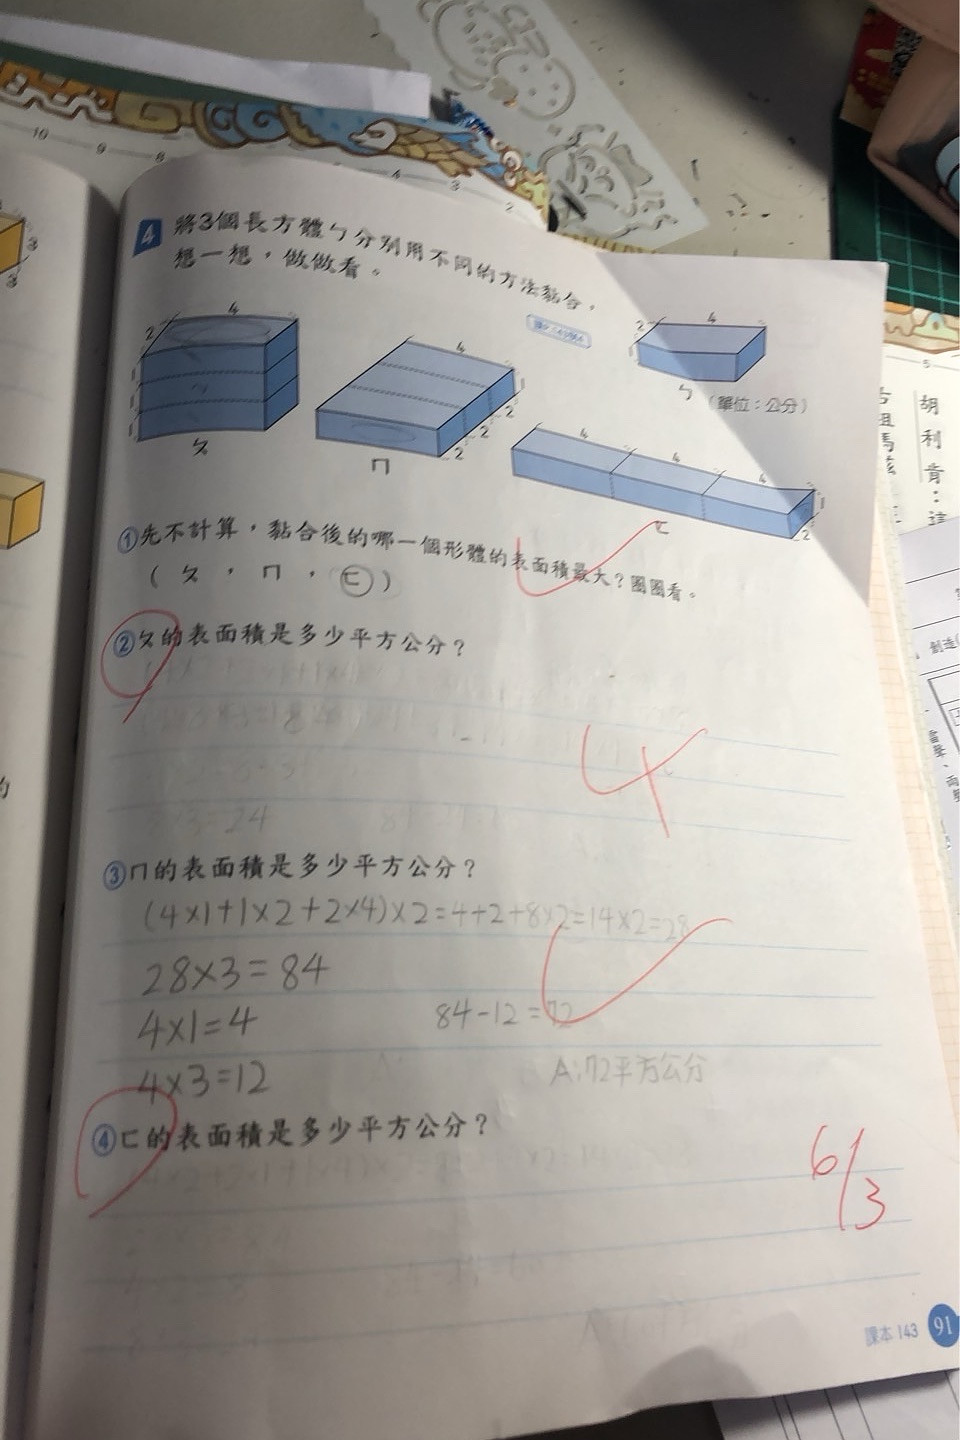 10 9 8 4 3 2
4 將3個長方體ㄅ分別用不同的方法黏合，
想一想，做做看。
2 4 1 1 1 ㄆ
4 2 2 2 ㄇ
4 4 4 1 2 ㄈ
2 4 1 ㄅ (單位：公分)
①先不計算，黏合後的哪一個形體的表面積最大？圈圈看。
(ㄆ，ㄇ，ㄈ)
②ㄆ的表面積是多少平方公分？
×3=24
③ㄇ的表面積是多少平方公分？
(4×1+1×2+2×4)×2=4+2+8×2=14×2=28
28×3=84
4×1=4 84-12=72
4×3=12 A:72平方公分
④ㄈ的表面積是多少平方公分？
6/3
課本 143 91
胡
利
肯
：